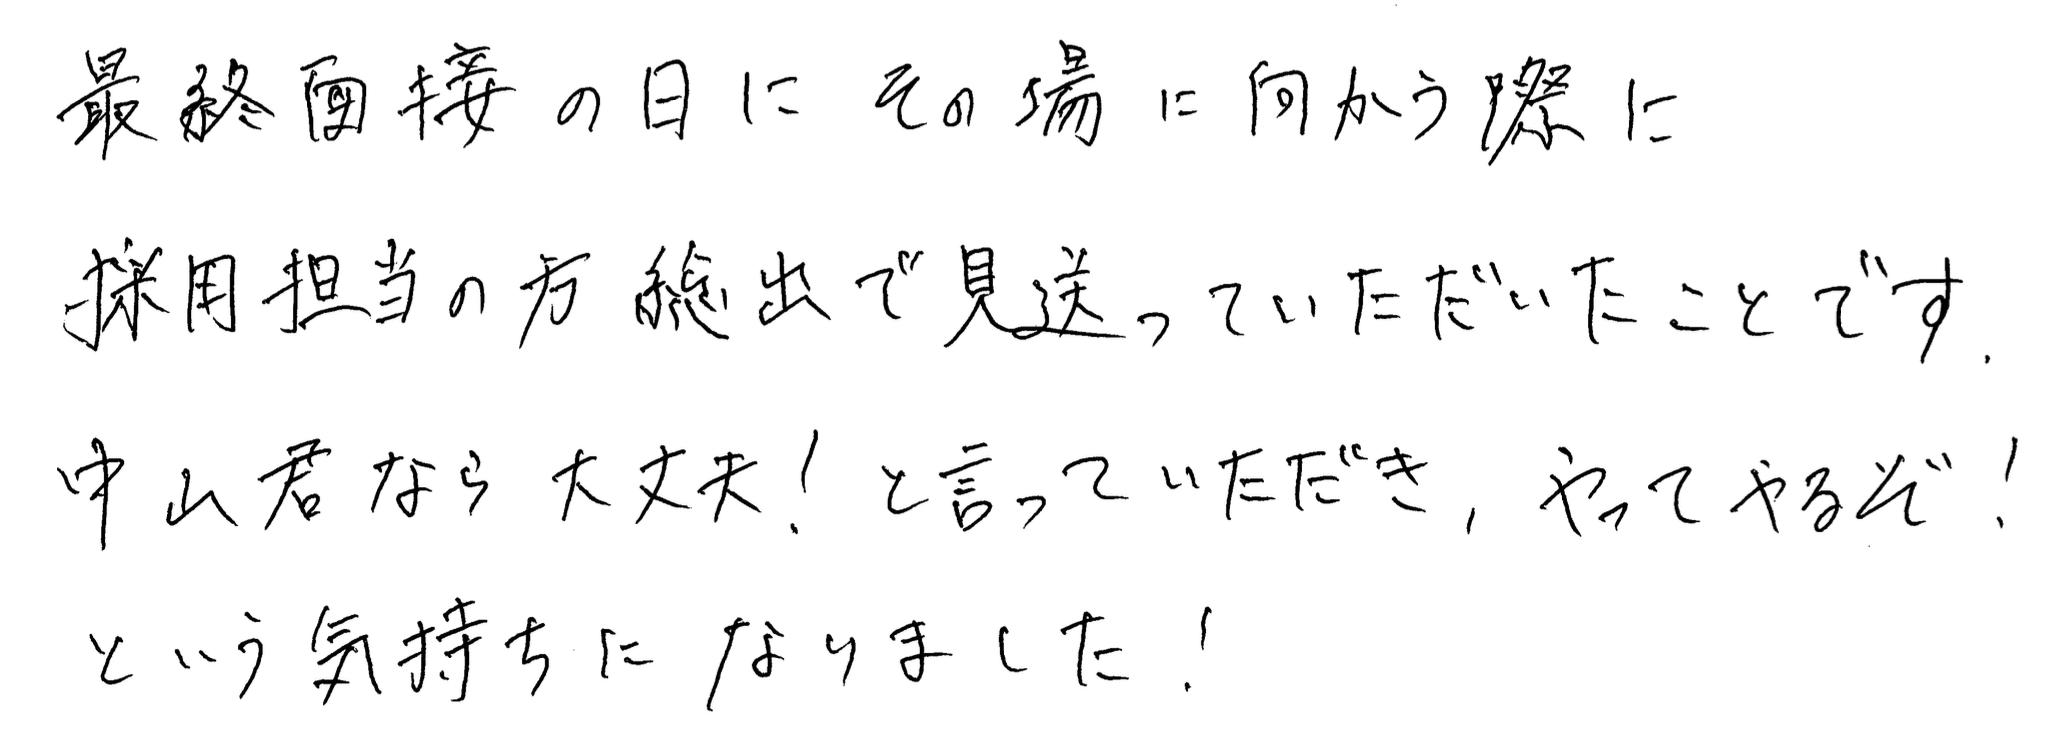 最終面接の日にその場に向かう際に
採用担当の方総出で見送っていただいたことです.
中山君なら大丈夫!と言っていただき,やってやるぞ!
という気持ちになりました!